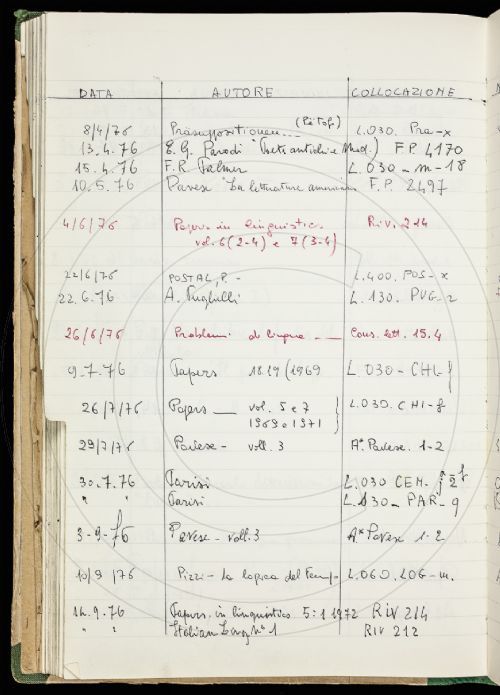 DATA AUTORE COLLOCAZIONE
8/4/76 Präsuppositionen... (Petöfi) L.030. Pra-x
13.4.76 E.G. Parodi (Poeti antichi e Mod.) F.P. 4170
15.4.76 F.R. Palmer L.030-m-18
10.5.76 Pavese La letteratura americana F.P. 2497
4/6/76 Papers in linguistics Riv. 214
vol. 6 (2-4) e 7 (3-4)
22/6/76 POSTAL, P. - L.400. POS-x
22.6.76 A. Puglielli L.130. PUG-2
26/6/76 Problemi di lingua - Cons. lett. 15.4
9.7.76 Papers 18.19 (1969 L.030-CHI-f
26/7/76 Papers — vol. 5 e 7 L.030. CHI-f
1969 e 1971
29/7/76 Pavese - voll. 3 A* Pavese. 1-2
30.7.76 Parisi L.030 CEM.
" " Parisi L.130-PAR-9
3-9-76 Pavese - voll. 3 A* Pavese 1-2
10/9/76 Pizzi - La logica del Tempo L.060. LOG-m.
14.9.76 Papers in linguistics 5:1 1972 RIV 214
" " Italian Ling. N° 1 RIV 212